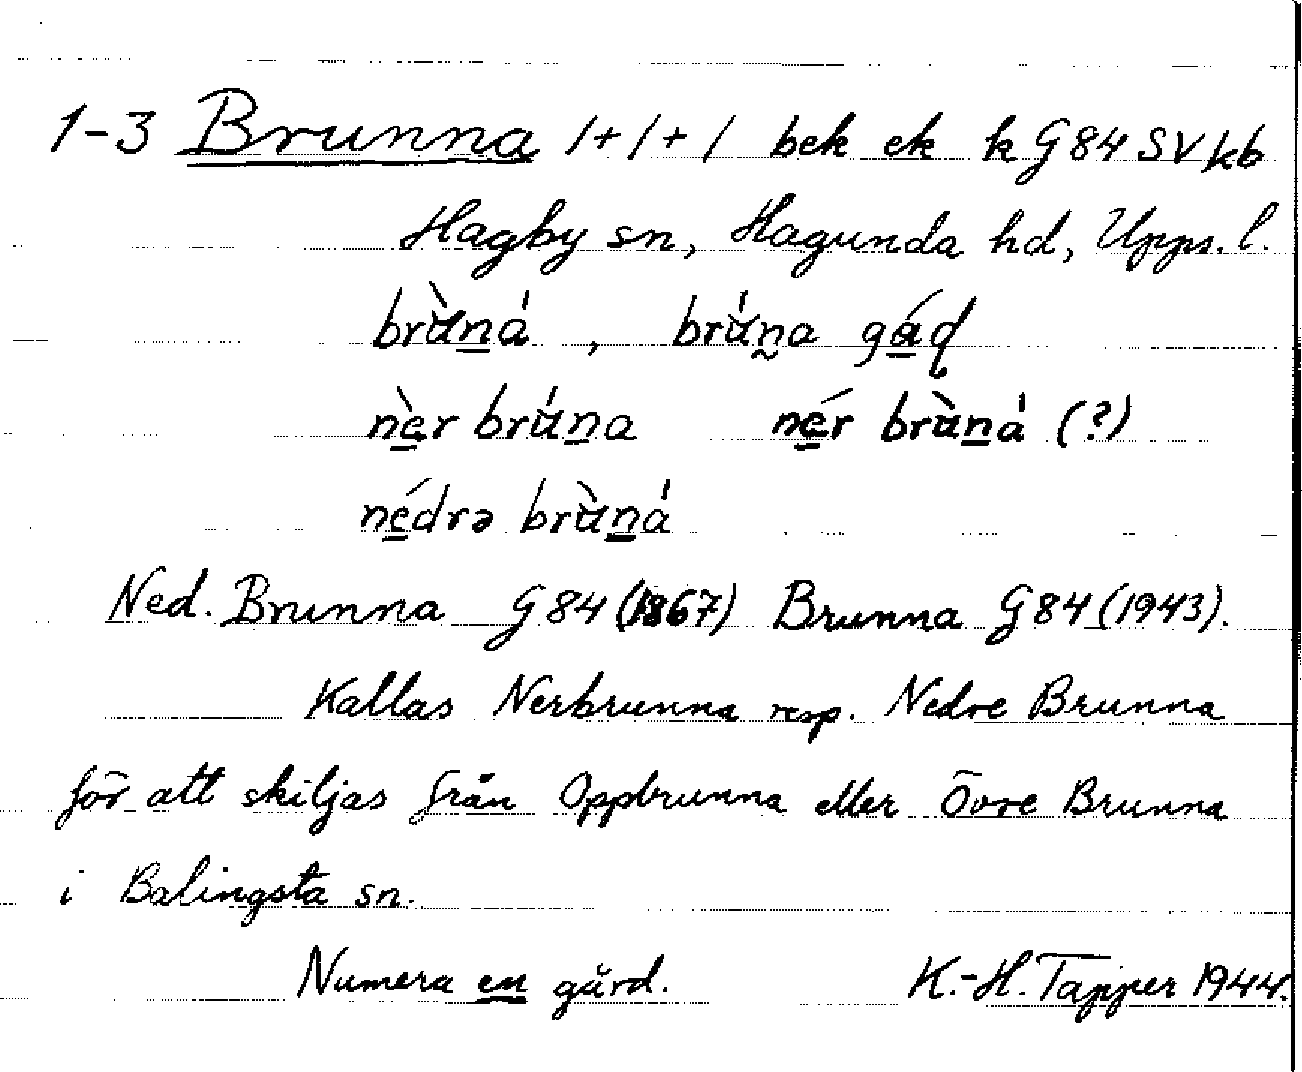 1-3 Brunna 1+1+1 bek ek k G 84 SV kb
Hagby sn, Hagunda hd, Upps. l.
brù̀ná , brú̀n̰a gáɖ
nèr brúna nér brùná (?)
nédrə brùná
Ned. Brunna G 84 (1867) Brunna G 84 (1943).
Kallas Nerbrunna resp. Nedre Brunna
för att skiljas från Oppbrunna eller Övre Brunna
i Balingsta sn.
Numera en gård. K.-H. Tapper 1944.